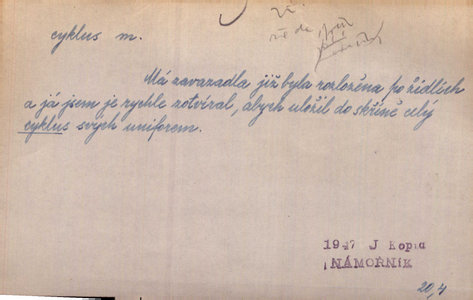 cyklus m.
Má zavazadla již byla rozložena po židlích
a já jsem je rychle rotvíral, abych uložil do skříně celý
cyklus svých uniforem.
1947 J Kopta
NÁMOŘNÍK
20,4